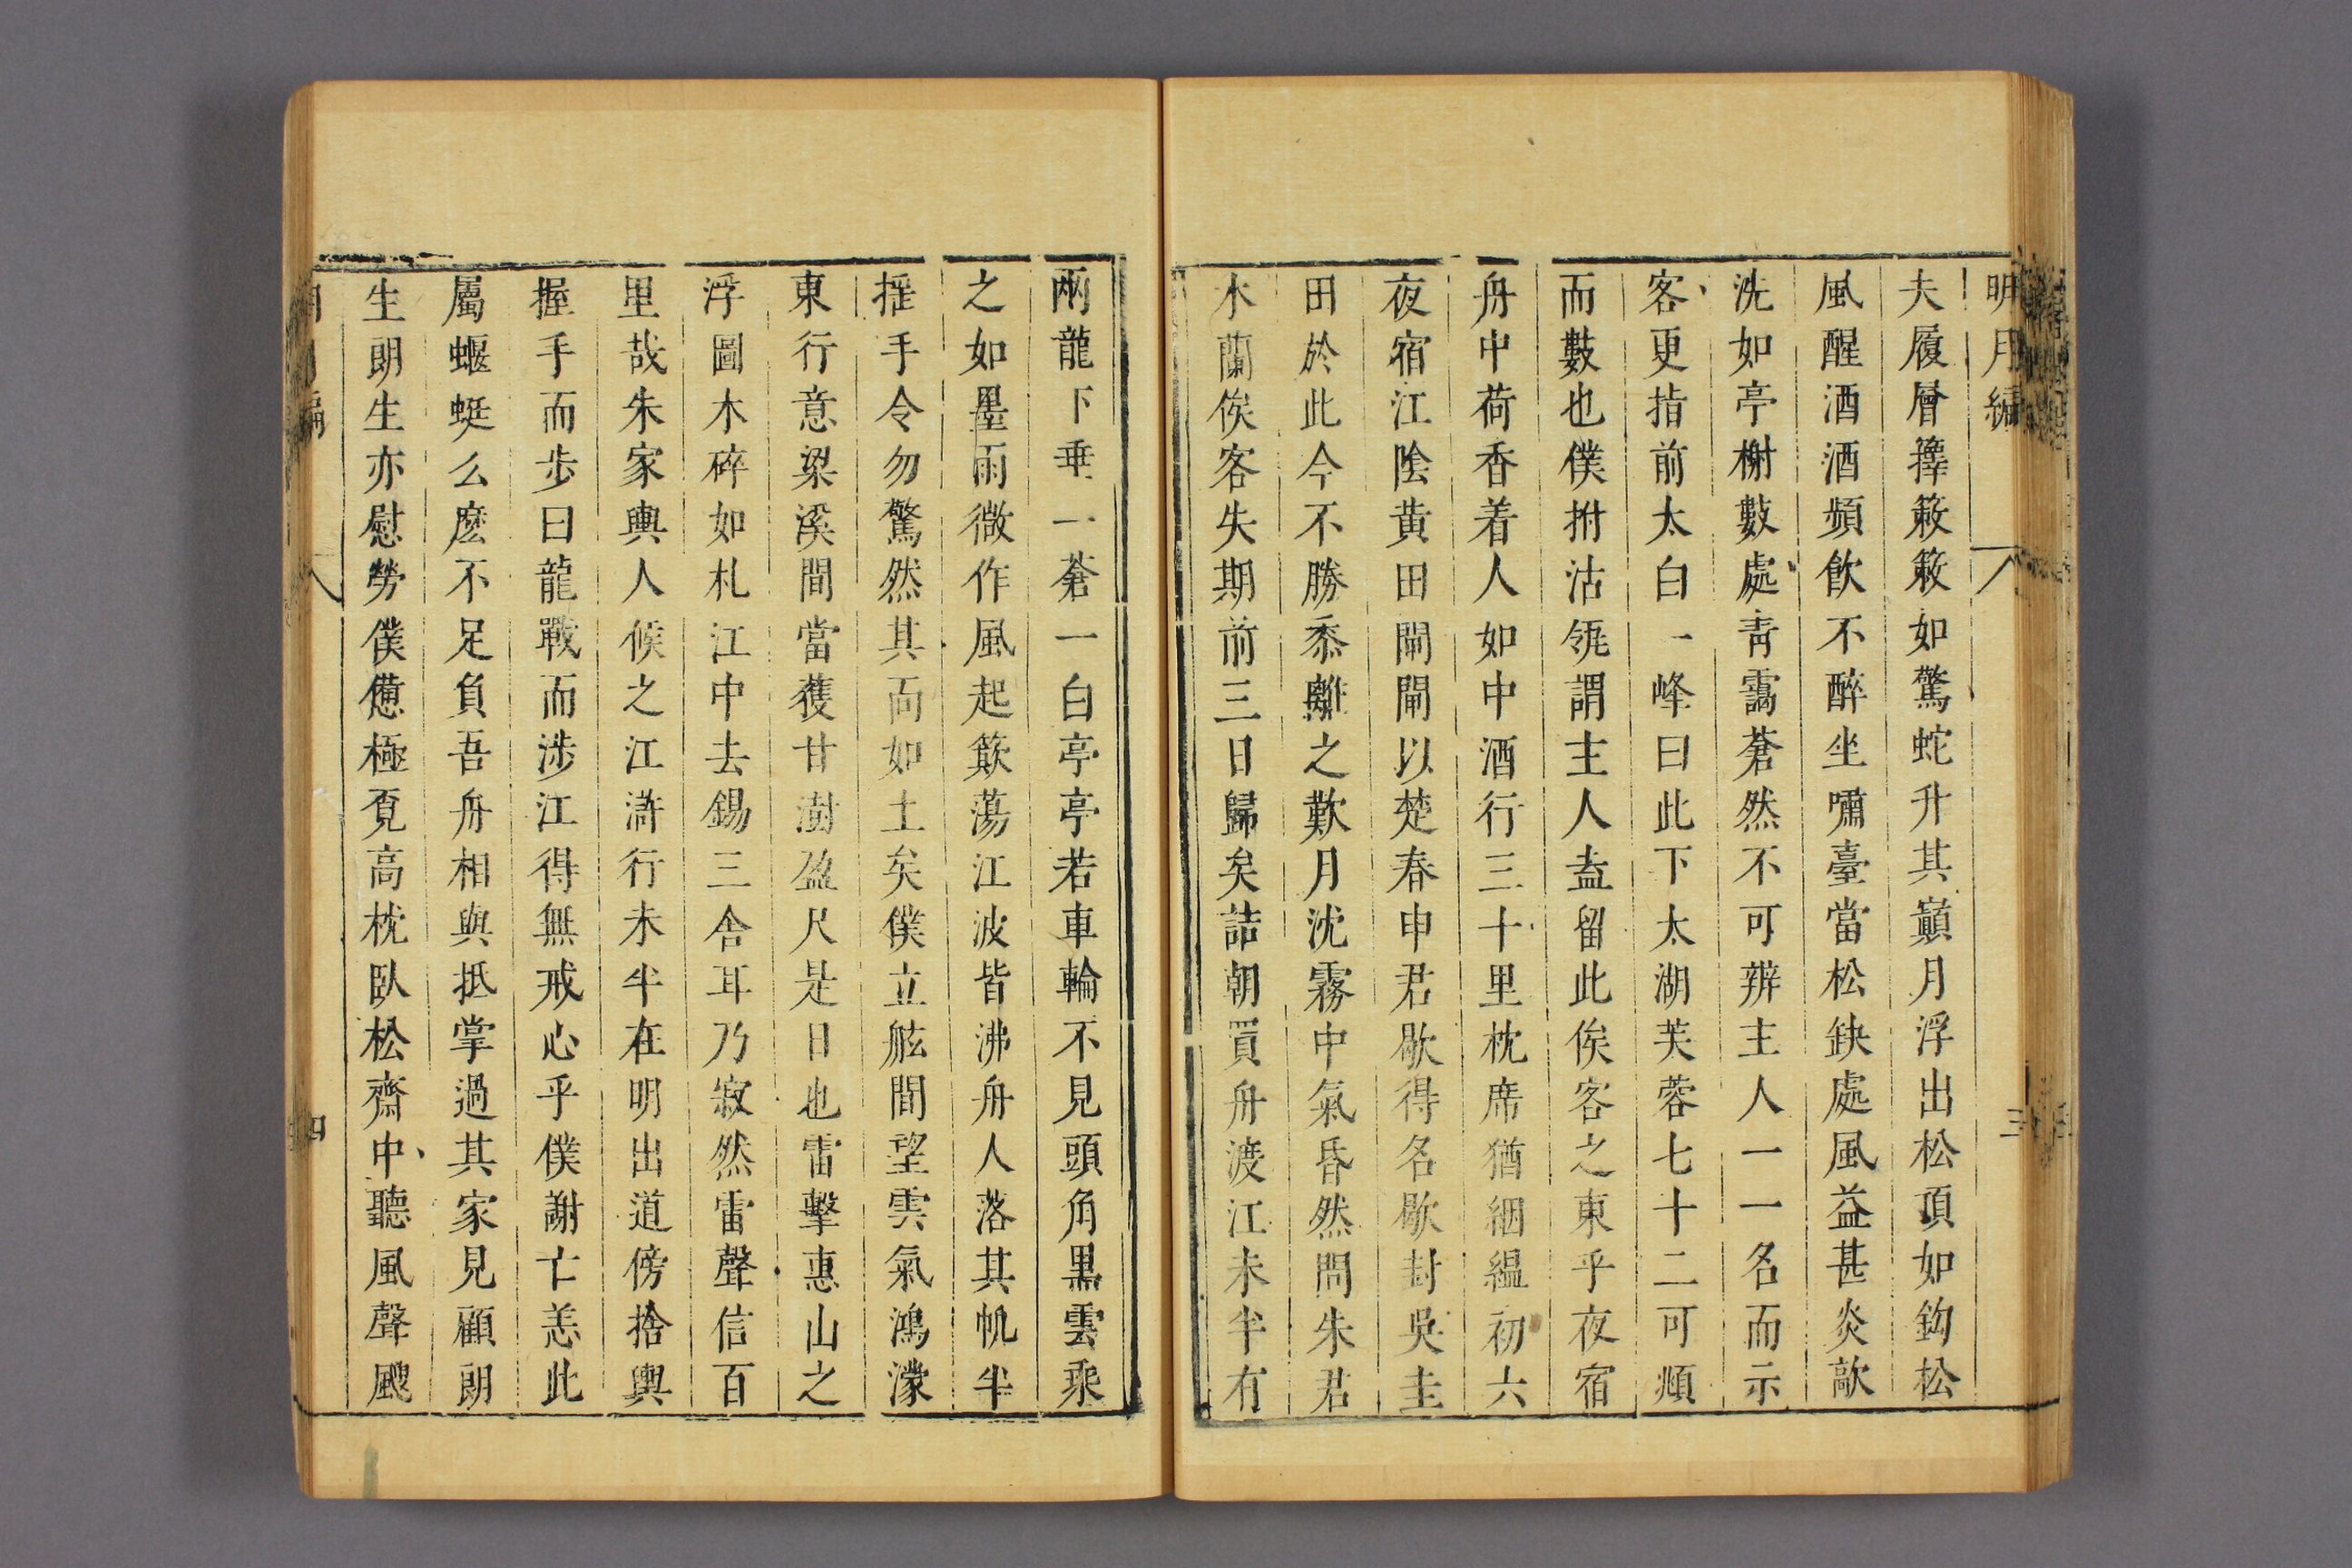 明月編
三
夫履層擇簌簌如驚蛇升其巔月浮出松頂如鈎松
風醒酒酒頻飲不醉坐嘯臺當松缺處風益甚炎歊
洗如亭榭數處青靄蒼然不可辨主人一一名而示
客更指前太白一峰曰此下太湖芙蓉七十二可頫
而數也僕拊沽瓴謂主人盍留此俟客之東乎夜宿
舟中荷香着人如中酒行三十里枕席猶絪縕初六
夜宿江陰黃田閘閘以楚春申君歇得名歇封吳圭
田於此今不勝黍離之歎月沈霧中氣昏然問朱君
木蘭俟客失期前三日歸矣詰朝買舟渡江未半有
兩龍下垂一蒼一白亭亭若車輪不見頭角黑雲乘
之如墨雨微作風起簸蕩江波皆沸舟人落其帆半
搖手令勿驚然其面如土矣僕立舷間望雲氣鴻濛
東行意梁溪間當獲甘澍盈尺是日也雷擊惠山之
浮圖木碎如札江中去錫三舍耳乃寂然雷聲信百
里哉朱家輿人候之江滸行未半在明出道傍捨輿
握手而步曰龍戰而涉江得無戒心乎僕謝亡恙此
屬蝘蜓么麼不足負吾舟相與抵掌過其家見顧朗
生朗生亦慰勞僕憊極覓高枕臥松齋中聽風聲颼
四